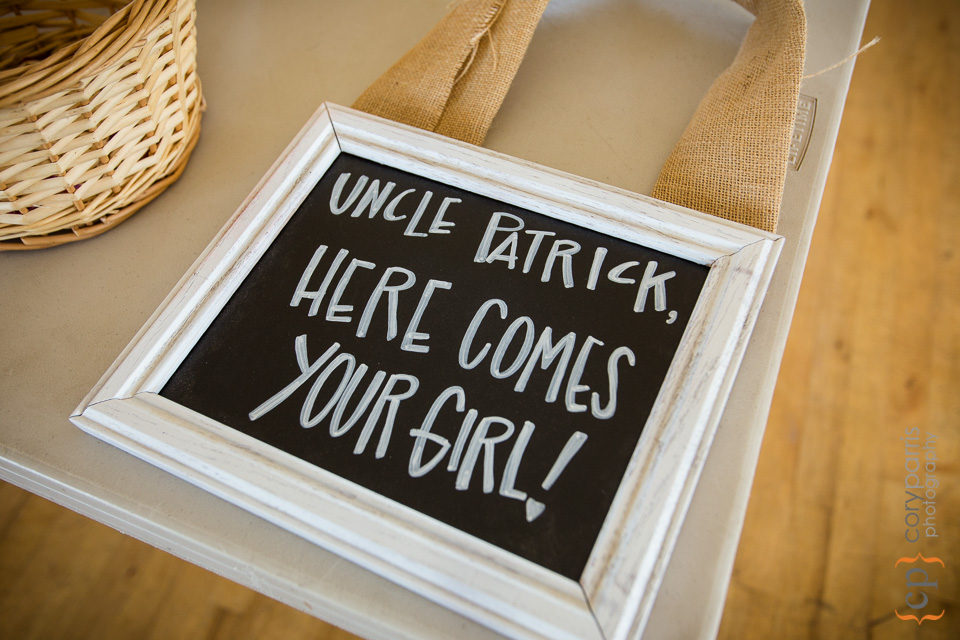 UNCLE PATRICK,
HERE COMES
YOUR GIRL!
LIFETIME
coryparris
photography
cp